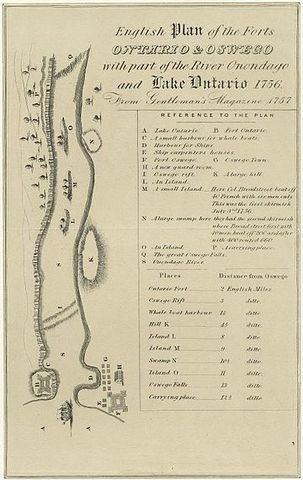 English Plan of the Forts
ONTARIO & OSWEGO
with part of the River Onondago
and Lake Ontario 1756.
From Gentleman's Magazine 1757
REFERENCE TO THE PLAN
A Lake Ontario. B Fort Ontario.
C A small harbour for whale boats.
D Harbour for Ships.
E Ship carpenters houses.
F Fort Oswego. G Oswego Town.
H A new guard room.
I Oswego rift. K A large hill.
L An Island.
M A small Island. Here Col. Broadstreet beat off
40 French with six men only
This was the first skirmish
July 3rd 1756.
N A large swamp here they had the second skirmish
where Broadstreet first with
with
O An Island. P A carrying place.
Q The great Oswego Falls.
S Onondago River.
Places Distance from Oswego
Ontario Fort 2 English Miles
Oswego Rift 3 ditto
Whale boat harbour ditto
Hill K ditto
Island L 8 ditto
Island M 9 ditto
Swamp N ditto
Island O 11 ditto
Oswego Falls 12 ditto
Carrying place ditto
K
I
S
C
D
B
G
H
E
F
S
A
A
A